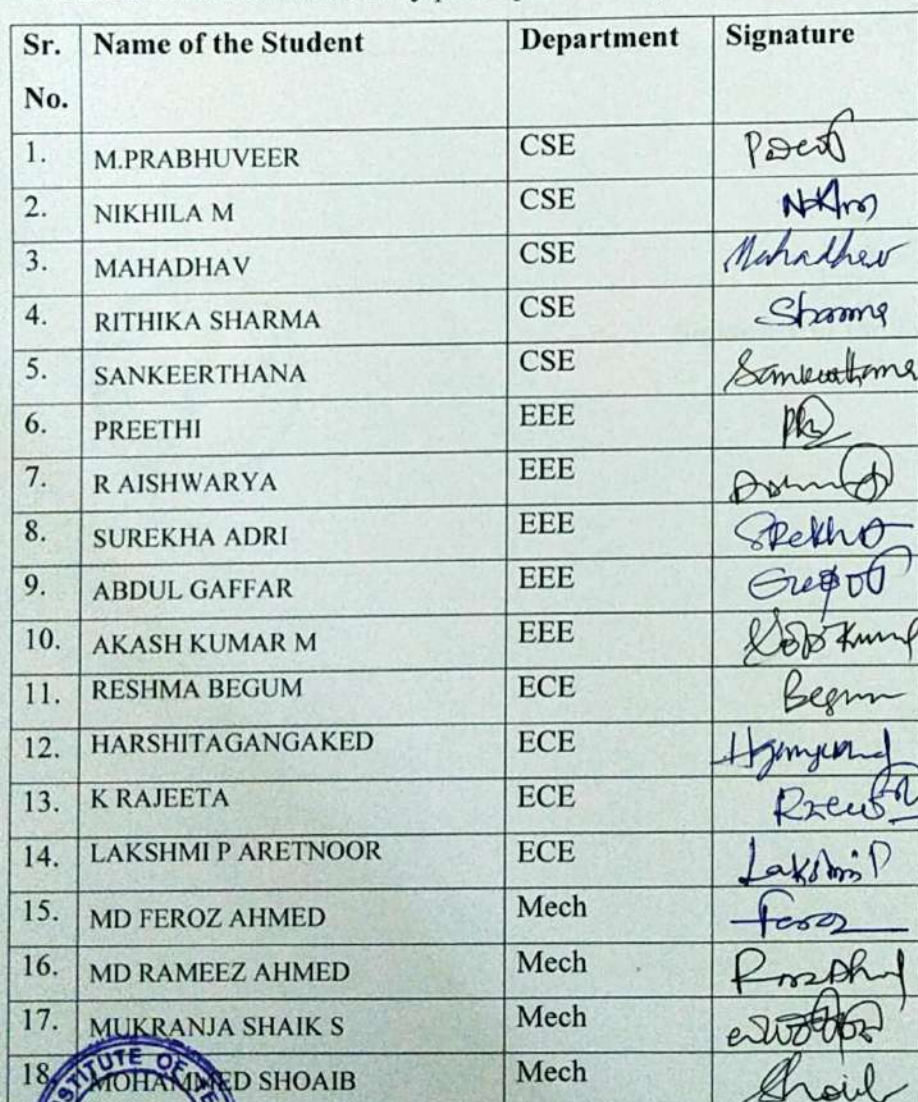 Sr. No. Name of the Student Department Signature
1. M.PRABHUVEER CSE
2. NIKHILA M CSE
3. MAHADHAV CSE Mahadhev
4. RITHIKA SHARMA CSE Sharma
5. SANKEERTHANA CSE Sankeerthana
6. PREETHI EEE
7. R AISHWARYA EEE
8. SUREKHA ADRI EEE SRekha
9. ABDUL GAFFAR EEE
10. AKASH KUMAR M EEE Kumar
11. RESHMA BEGUM ECE Begum
12. HARSHITAGANGAKED ECE
13. K RAJEETA ECE
14. LAKSHMI P ARETNOOR ECE Lakshmi P
15. MD FEROZ AHMED Mech Feroz
16. MD RAMEEZ AHMED Mech
17. MUKRANJA SHAIK S Mech
18 MOHAMMED SHOAIB Mech Shoaib
STITUTE OF TE